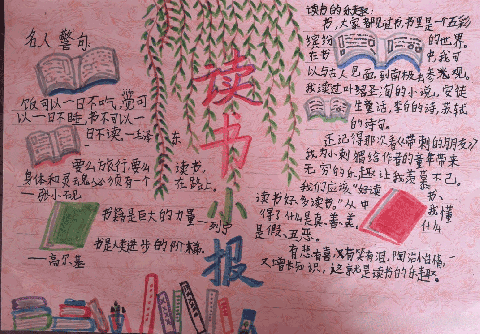 名人警句
饭可以一日不吃,觉可
以一日不睡,书不可以一
日不读。—毛泽东
要么旅行,要么读书,
身体和灵魂必须有一个在路上。
书籍是巨大的力量—列宁
书是人类进步的阶梯
——高尔基
读书小报
读书的乐趣:
书,大家都见过书里是一个五彩
缤纷的世界。
在书书我可
以与古人见面,到南极去参观。
我读过叶绍圣淘的小说,安徒
生童话,李白的诗,苏轼
的诗句。
还记得那次看《带刺的朋友》
我为小刺猬给作者的童年带来
无穷的乐趣让我羡慕不已。
我们应该“好读书、
读书好、多读书。”从中我懂
得了什么是真、善、美,什么
是假、丑、恶。
有悲有喜、又有笑有泪,陶冶
又增长知识,这就是读书的乐趣。